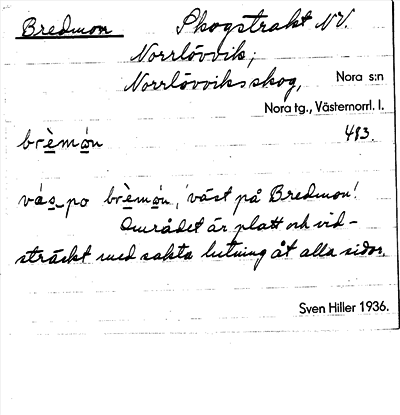 Bredmon Skogstrakt NV.
Norrlövvik;
Norrlövviksskog, Nora s:n
Nora tg., Västernorrl. l.
brèmón 483.
vás po brèmón, 'väst på Bredmon'.
Området är platt och vid-
sträckt med sakta lutning åt alla sidor.
Sven Hiller 1936.